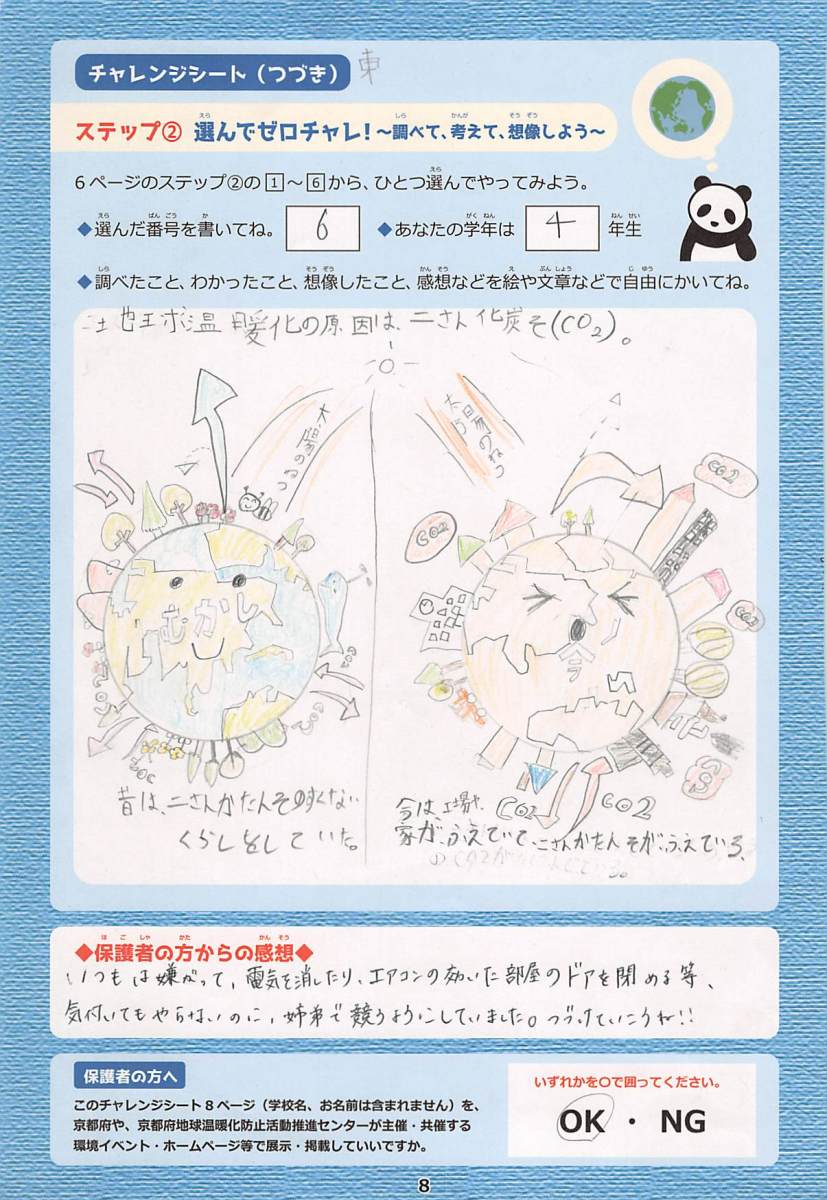 チャレンジシート(つづき) 東
ステップ② 選んでゼロチャレ!~調べて、考えて、想像しよう~
6ページのステップ②の1~6から、ひとつ選んでやってみよう。
◆選んだ番号を書いてね。 6 ◆あなたの学年は 4 年生
◆調べたこと、わかったこと、想像したこと、感想などを絵や文章などで自由にかいてね。
地球温暖化の原因は、二さん化炭そ(CO2)。
太陽のねつ
太陽のねつ
CO2
CO2
CO2
むかし
今
CO2
CO2
昔は、二さんかたんそのすくない
くらしをしていた。
今は、工場や、
家が、ふえていて、二さんかたんそが、ふえている、
◆保護者の方からの感想◆
いつもは嫌がって、電気を消したり、エアコンの効いた部屋のドアを閉める等、
気付いてもやらないのに、姉弟で競うようにしていました。つづけていこうね!!
保護者の方へ
このチャレンジシート8ページ(学校名、お名前は含まれません)を、
京都府や、京都府地球温暖化防止活動推進センターが主催・共催する
環境イベント・ホームページ等で展示・掲載していいですか。
いずれかを○で囲ってください。
OK ・ NG
8